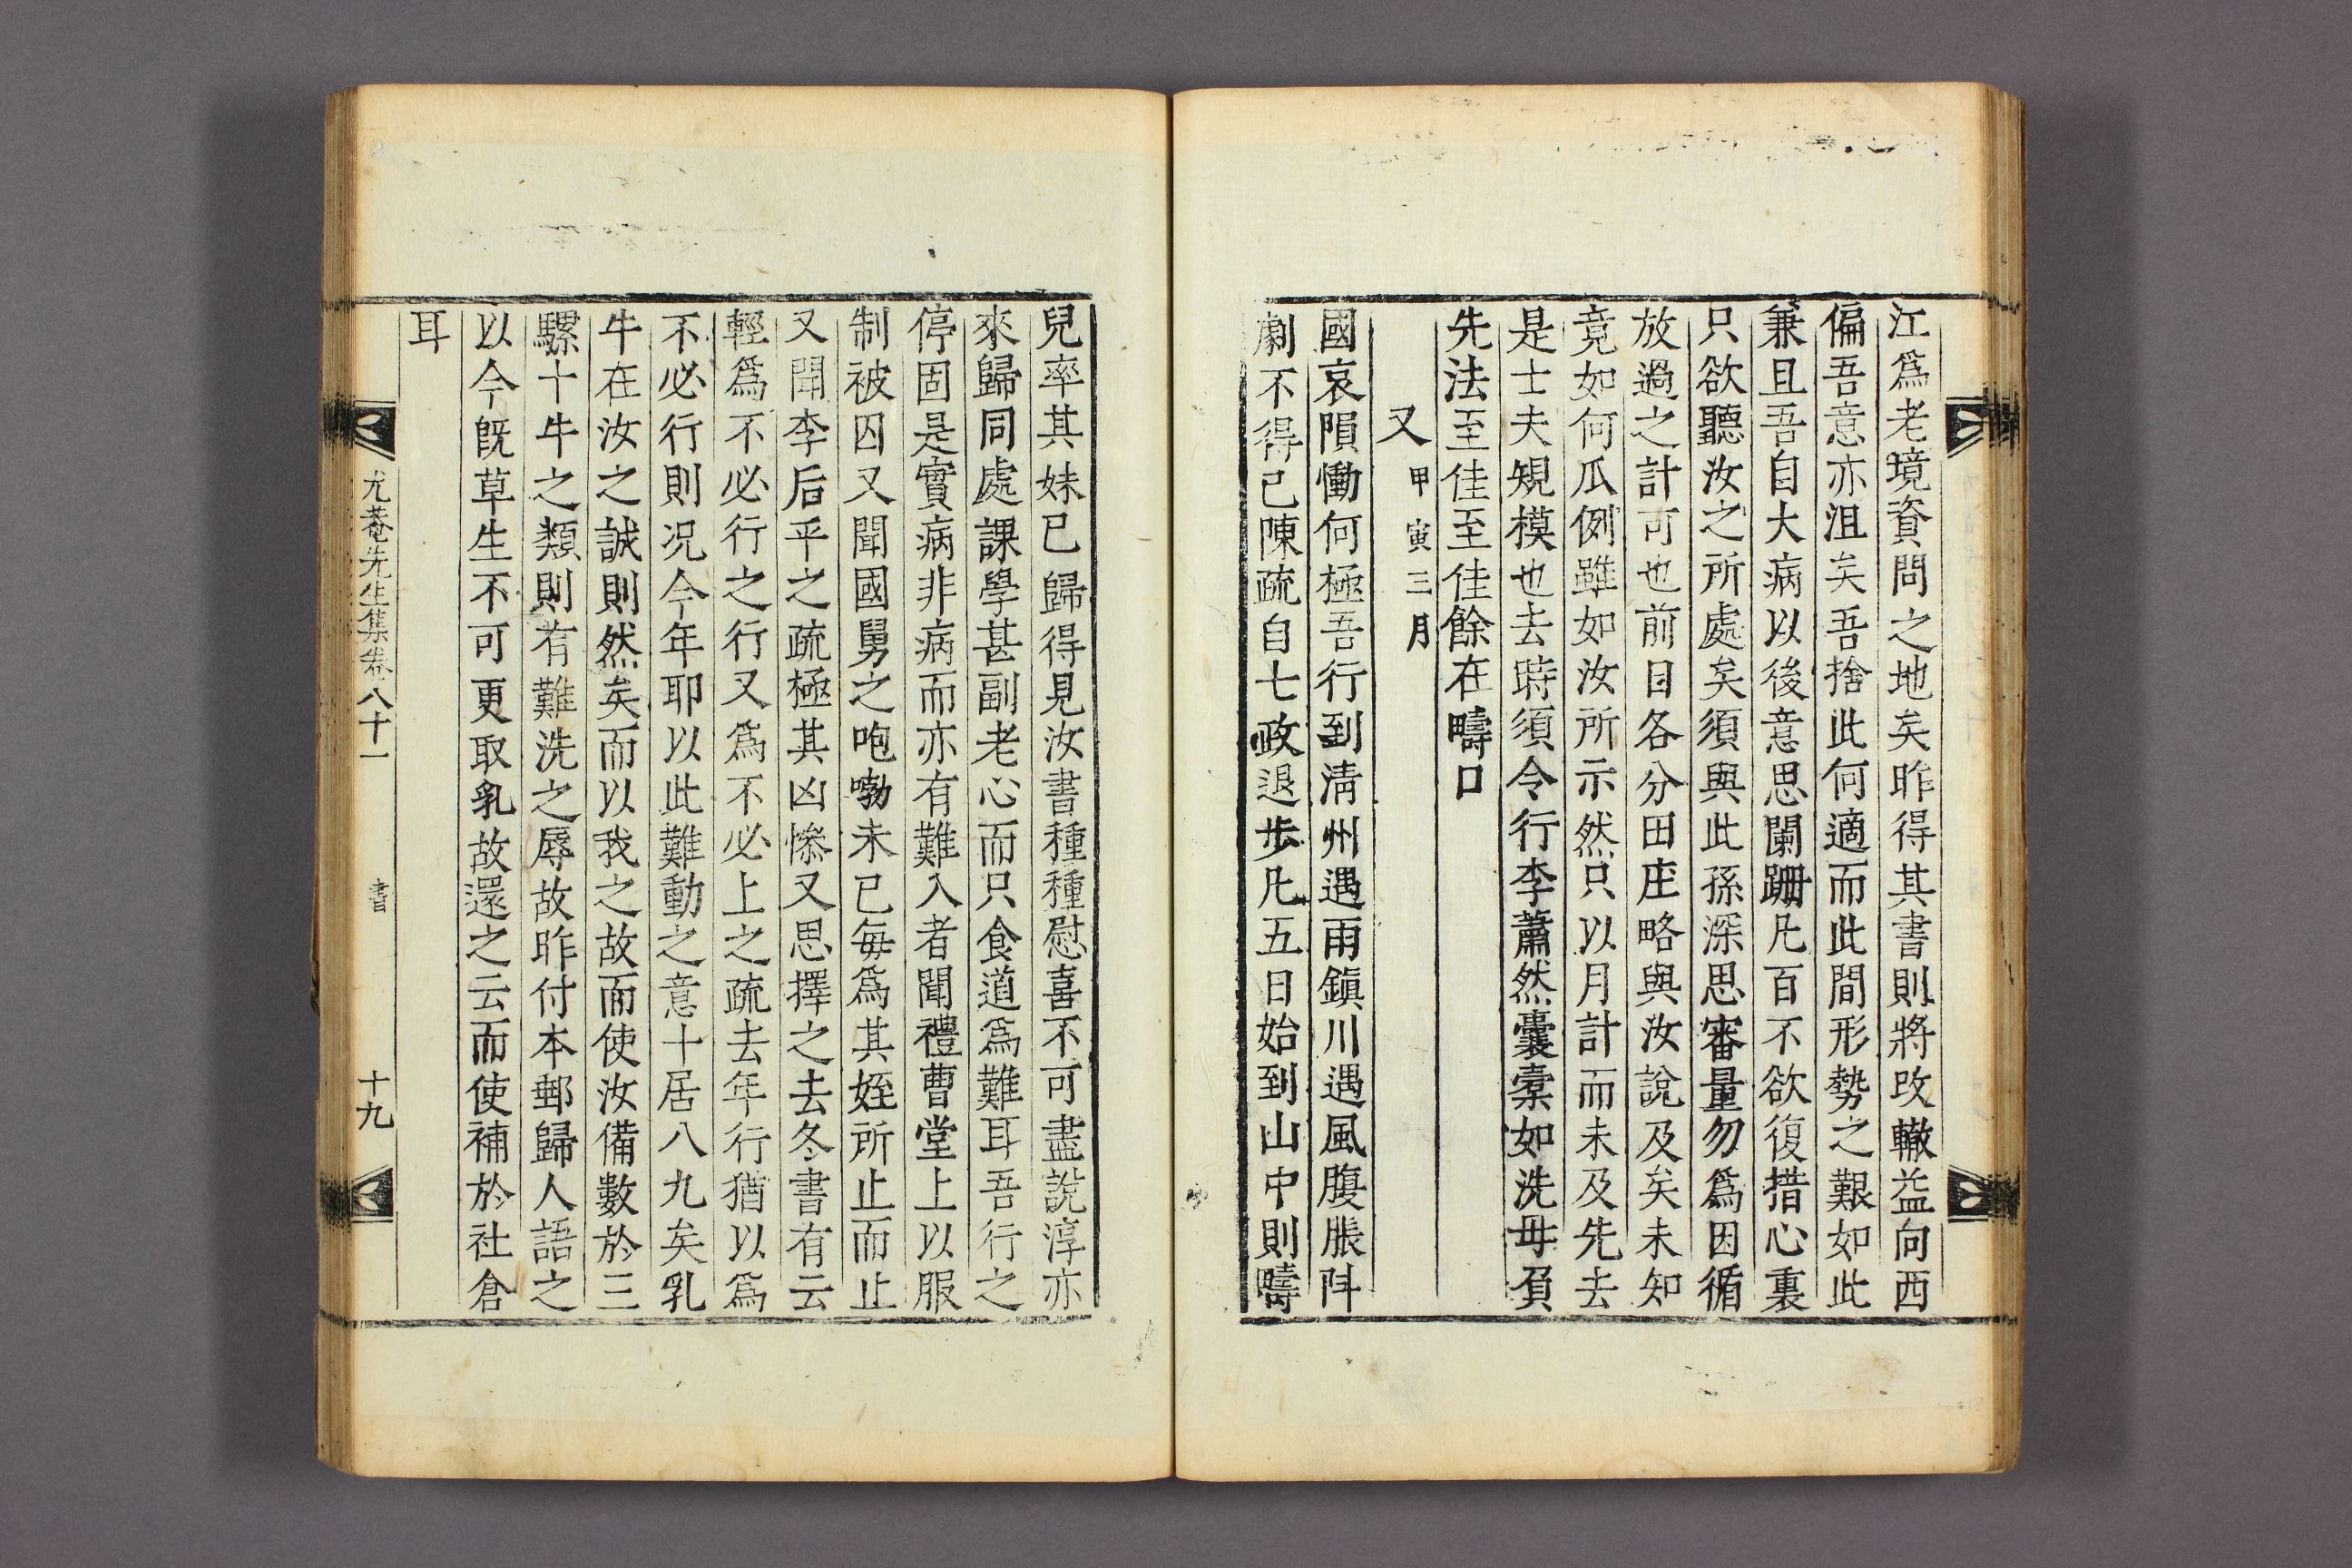 江爲老境資問之地矣昨得其書則將改轍益向西
偏吾意亦沮矣吾捨此何適而此間形勢之艱如此
兼且吾自大病以後意思闌跚凡百不欲復措心裏
只欲聽汝之所處矣須與此孫深思審量勿爲因循
放過之計可也前日各分田庄略與汝說及矣未知
竟如何瓜例雖如汝所示然只以月計而未及先去
是士夫規模也去時須令行李蕭然囊槖如洗毋負
先法至佳至佳餘在疇口
又甲寅三月
國哀隕慟何極吾行到淸州遇雨鎭川遇風腹脹斗
劇不得已陳疏自七政退步凡五日始到山中則疇
兒率其妹已歸得見汝書種種慰喜不可盡說淳亦
來歸同處課學甚副老心而只食道爲難耳吾行之
停固是實病非病而亦有難入者聞禮曹堂上以服
制被囚又聞國舅之咆嘞未已每爲其姪所止而止
又聞李后平之疏極其凶慘又思擇之去冬書有云
輕爲不必行之行又爲不必上之疏去年行猶以爲
不必行則况今年耶以此難動之意十居八九矣乳
牛在汝之誠則然矣而以我之故而使汝備數於三
騾十牛之類則有難洗之辱故昨付本郵歸人語之
以今旣草生不可更取乳故還之云而使補於社倉
耳
尤菴先生集卷八十一 書 十九